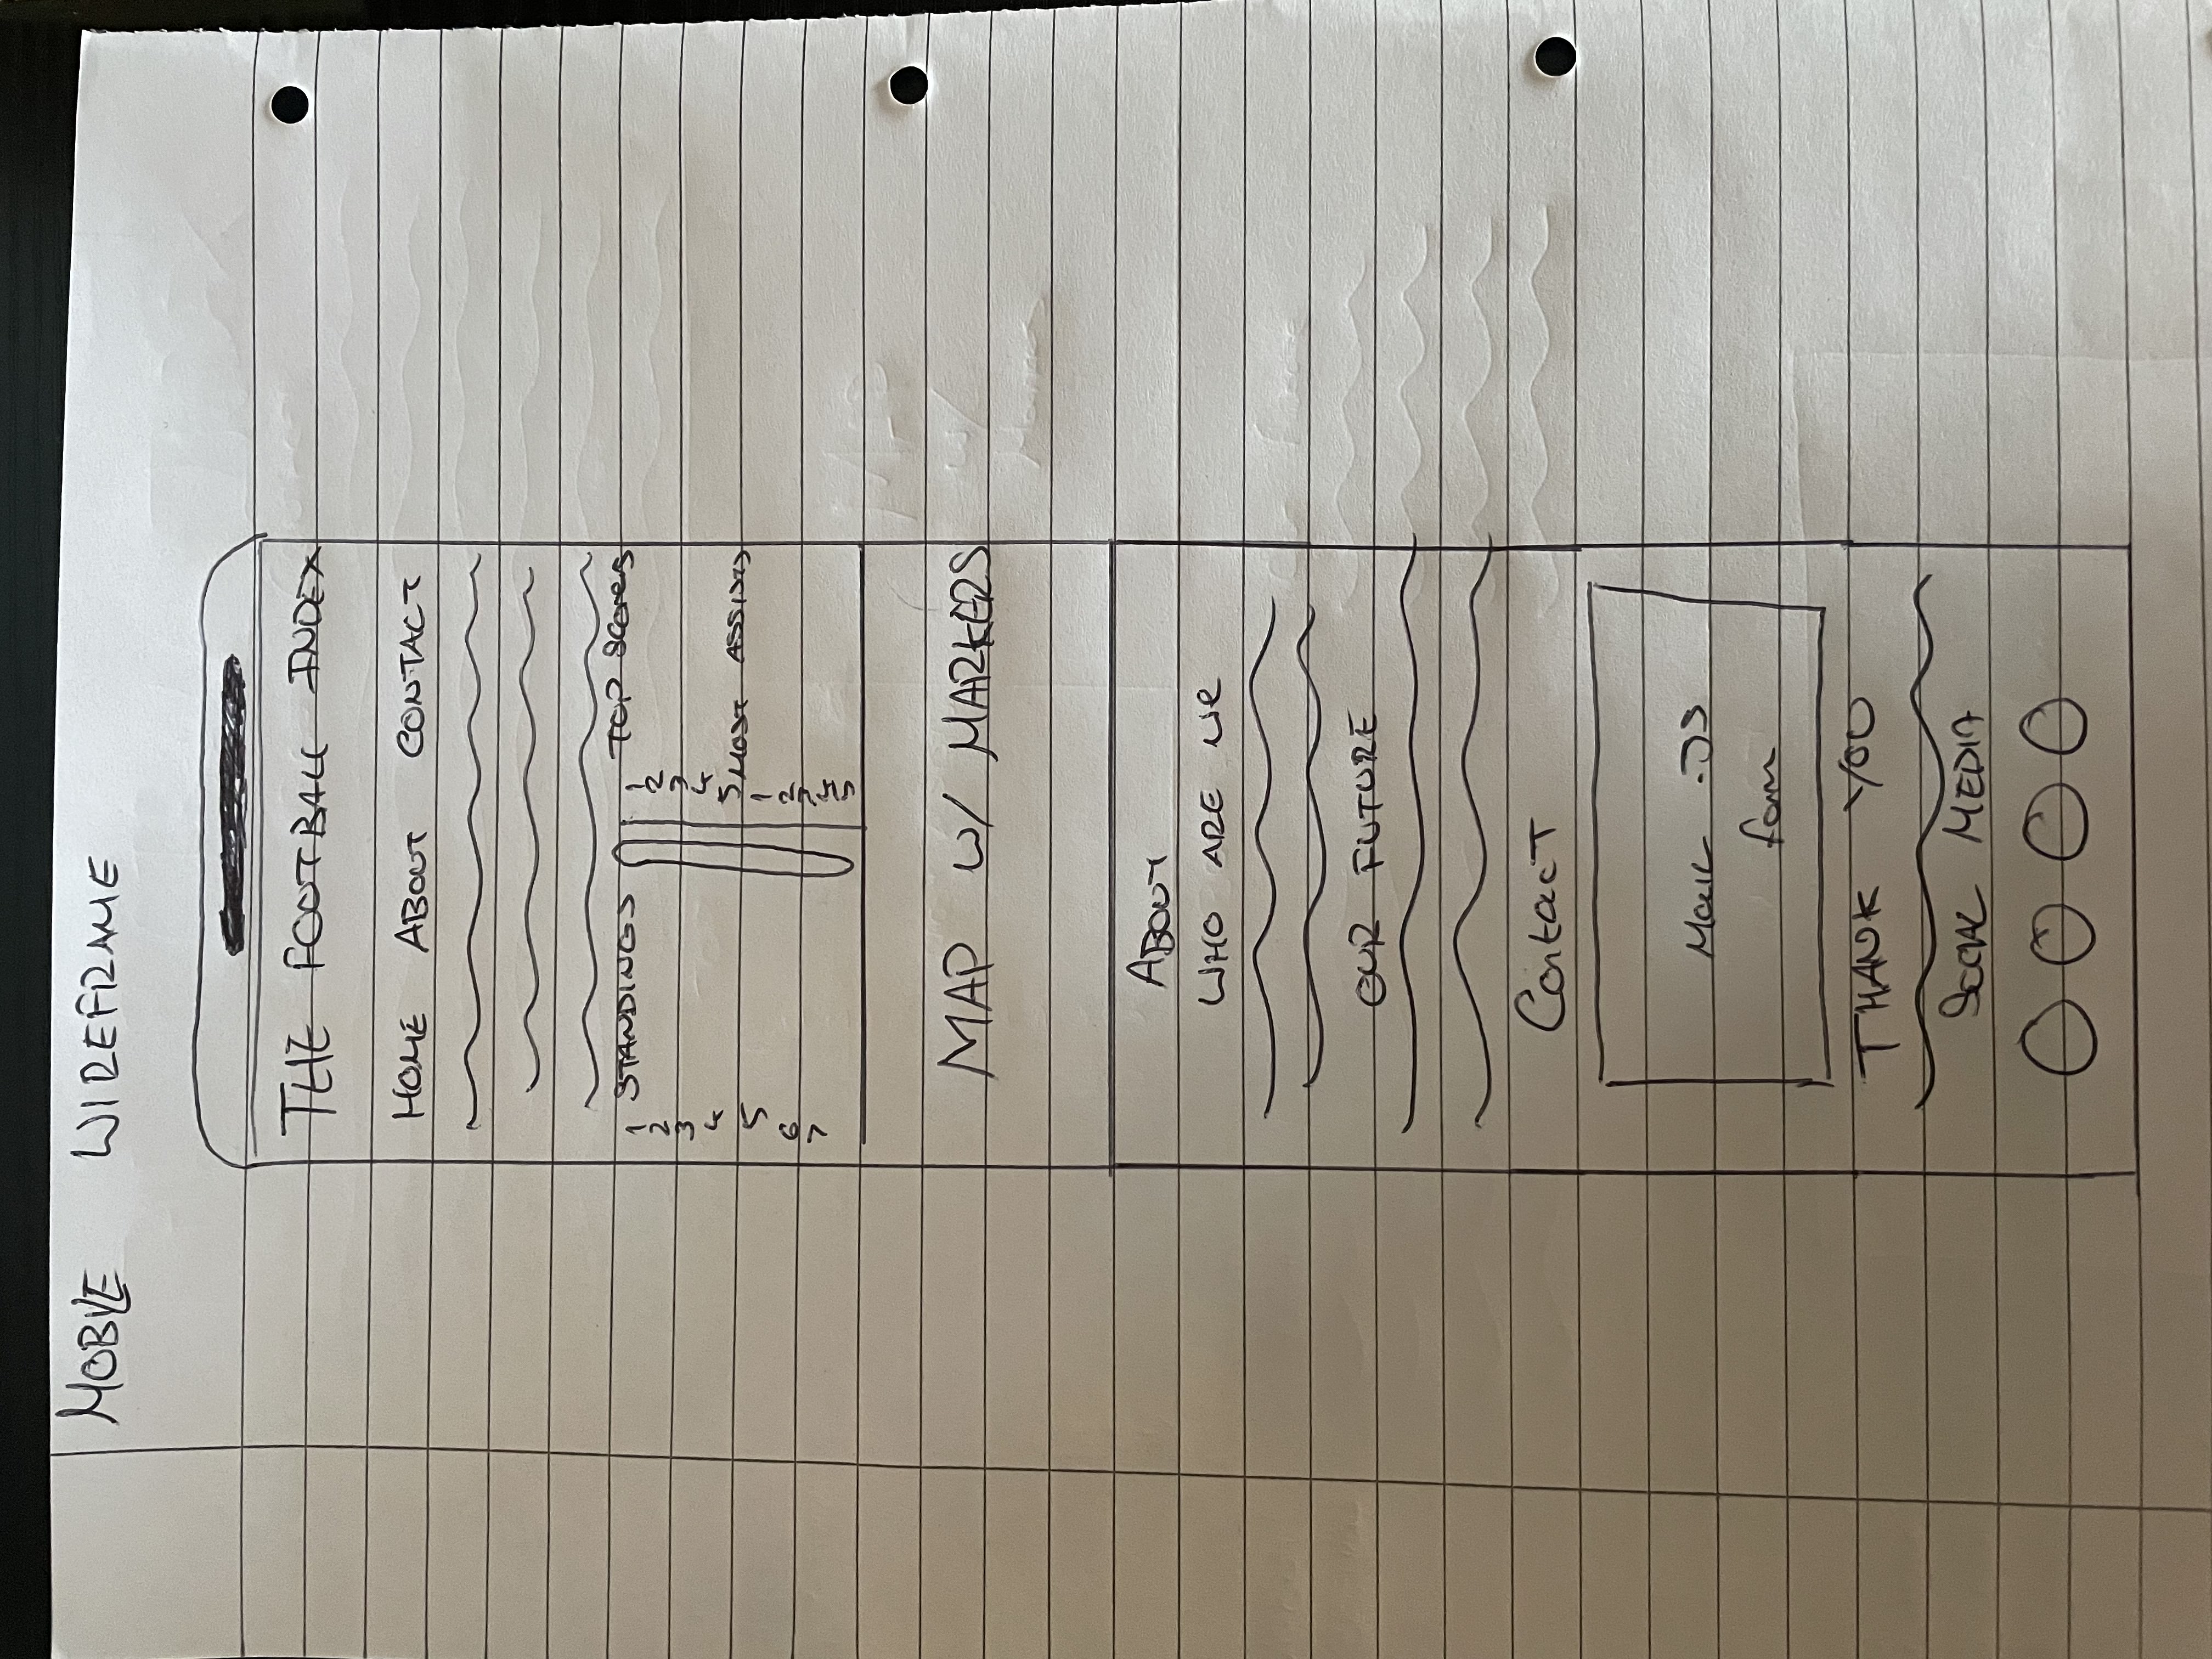 MOBILE WIREFRAME
THE FOOTBALL INDEX
HOME ABOUT CONTACT
STANDINGS
1
2
3
4
5
6
7
TOP SCORERS
1
2
3
4
5
MOST ASSISTS
1
2
3
4
5
MAP W/ MARKERS
ABOUT
WHO ARE We
OUR FUTURE
Contact
Mail .JS
form
THANK YOU
SOCIAL MEDIA